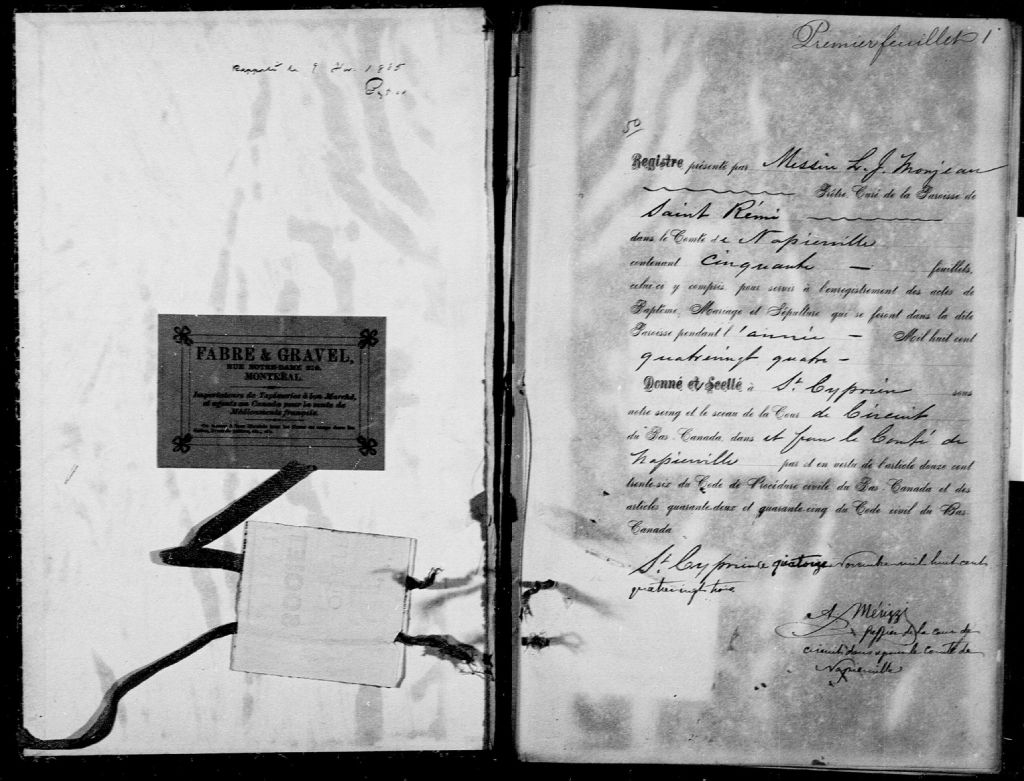 1885
FABRE & GRAVEL,
RUE NOTRE-DAME 219.
MONTRÉAL
Importateurs de Tapisseries à bon Marché,
et agents au Canada pour la vente de
Médicaments français.
Premier feuillet 1
50
Registre présenté par Messire L. J. Morjeau
Prêtre Curé de la Paroisse de
Saint Rémi
dans le Comté de Napierville
contenant Cinquante — feuillets,
celui-ci y compris, pour servir à l'enregistrement des actes de
Baptême, Mariage et Sépulture qui se feront dans la dite
Paroisse pendant l'année — Mil huit cent
quatrevingt quatre —
Donné et Scellé à St. Cyprien sous
notre seing et le sceau de la Cour de Circuit
du Bas-Canada, dans et pour le Comté de
Napierville par et en vertu de l'article douze cent
trente-six du Code de Procédure civile du Bas-Canada et des
articles quarante-deux et quarante-cinq du Code civil du Bas-
Canada
St. Cyprien ce quatorze Novembre mil huit cent
quatrevingt trois
A. Mérizzi
Greffier de la cour de
circuit dans et pour le comté de
Napierville